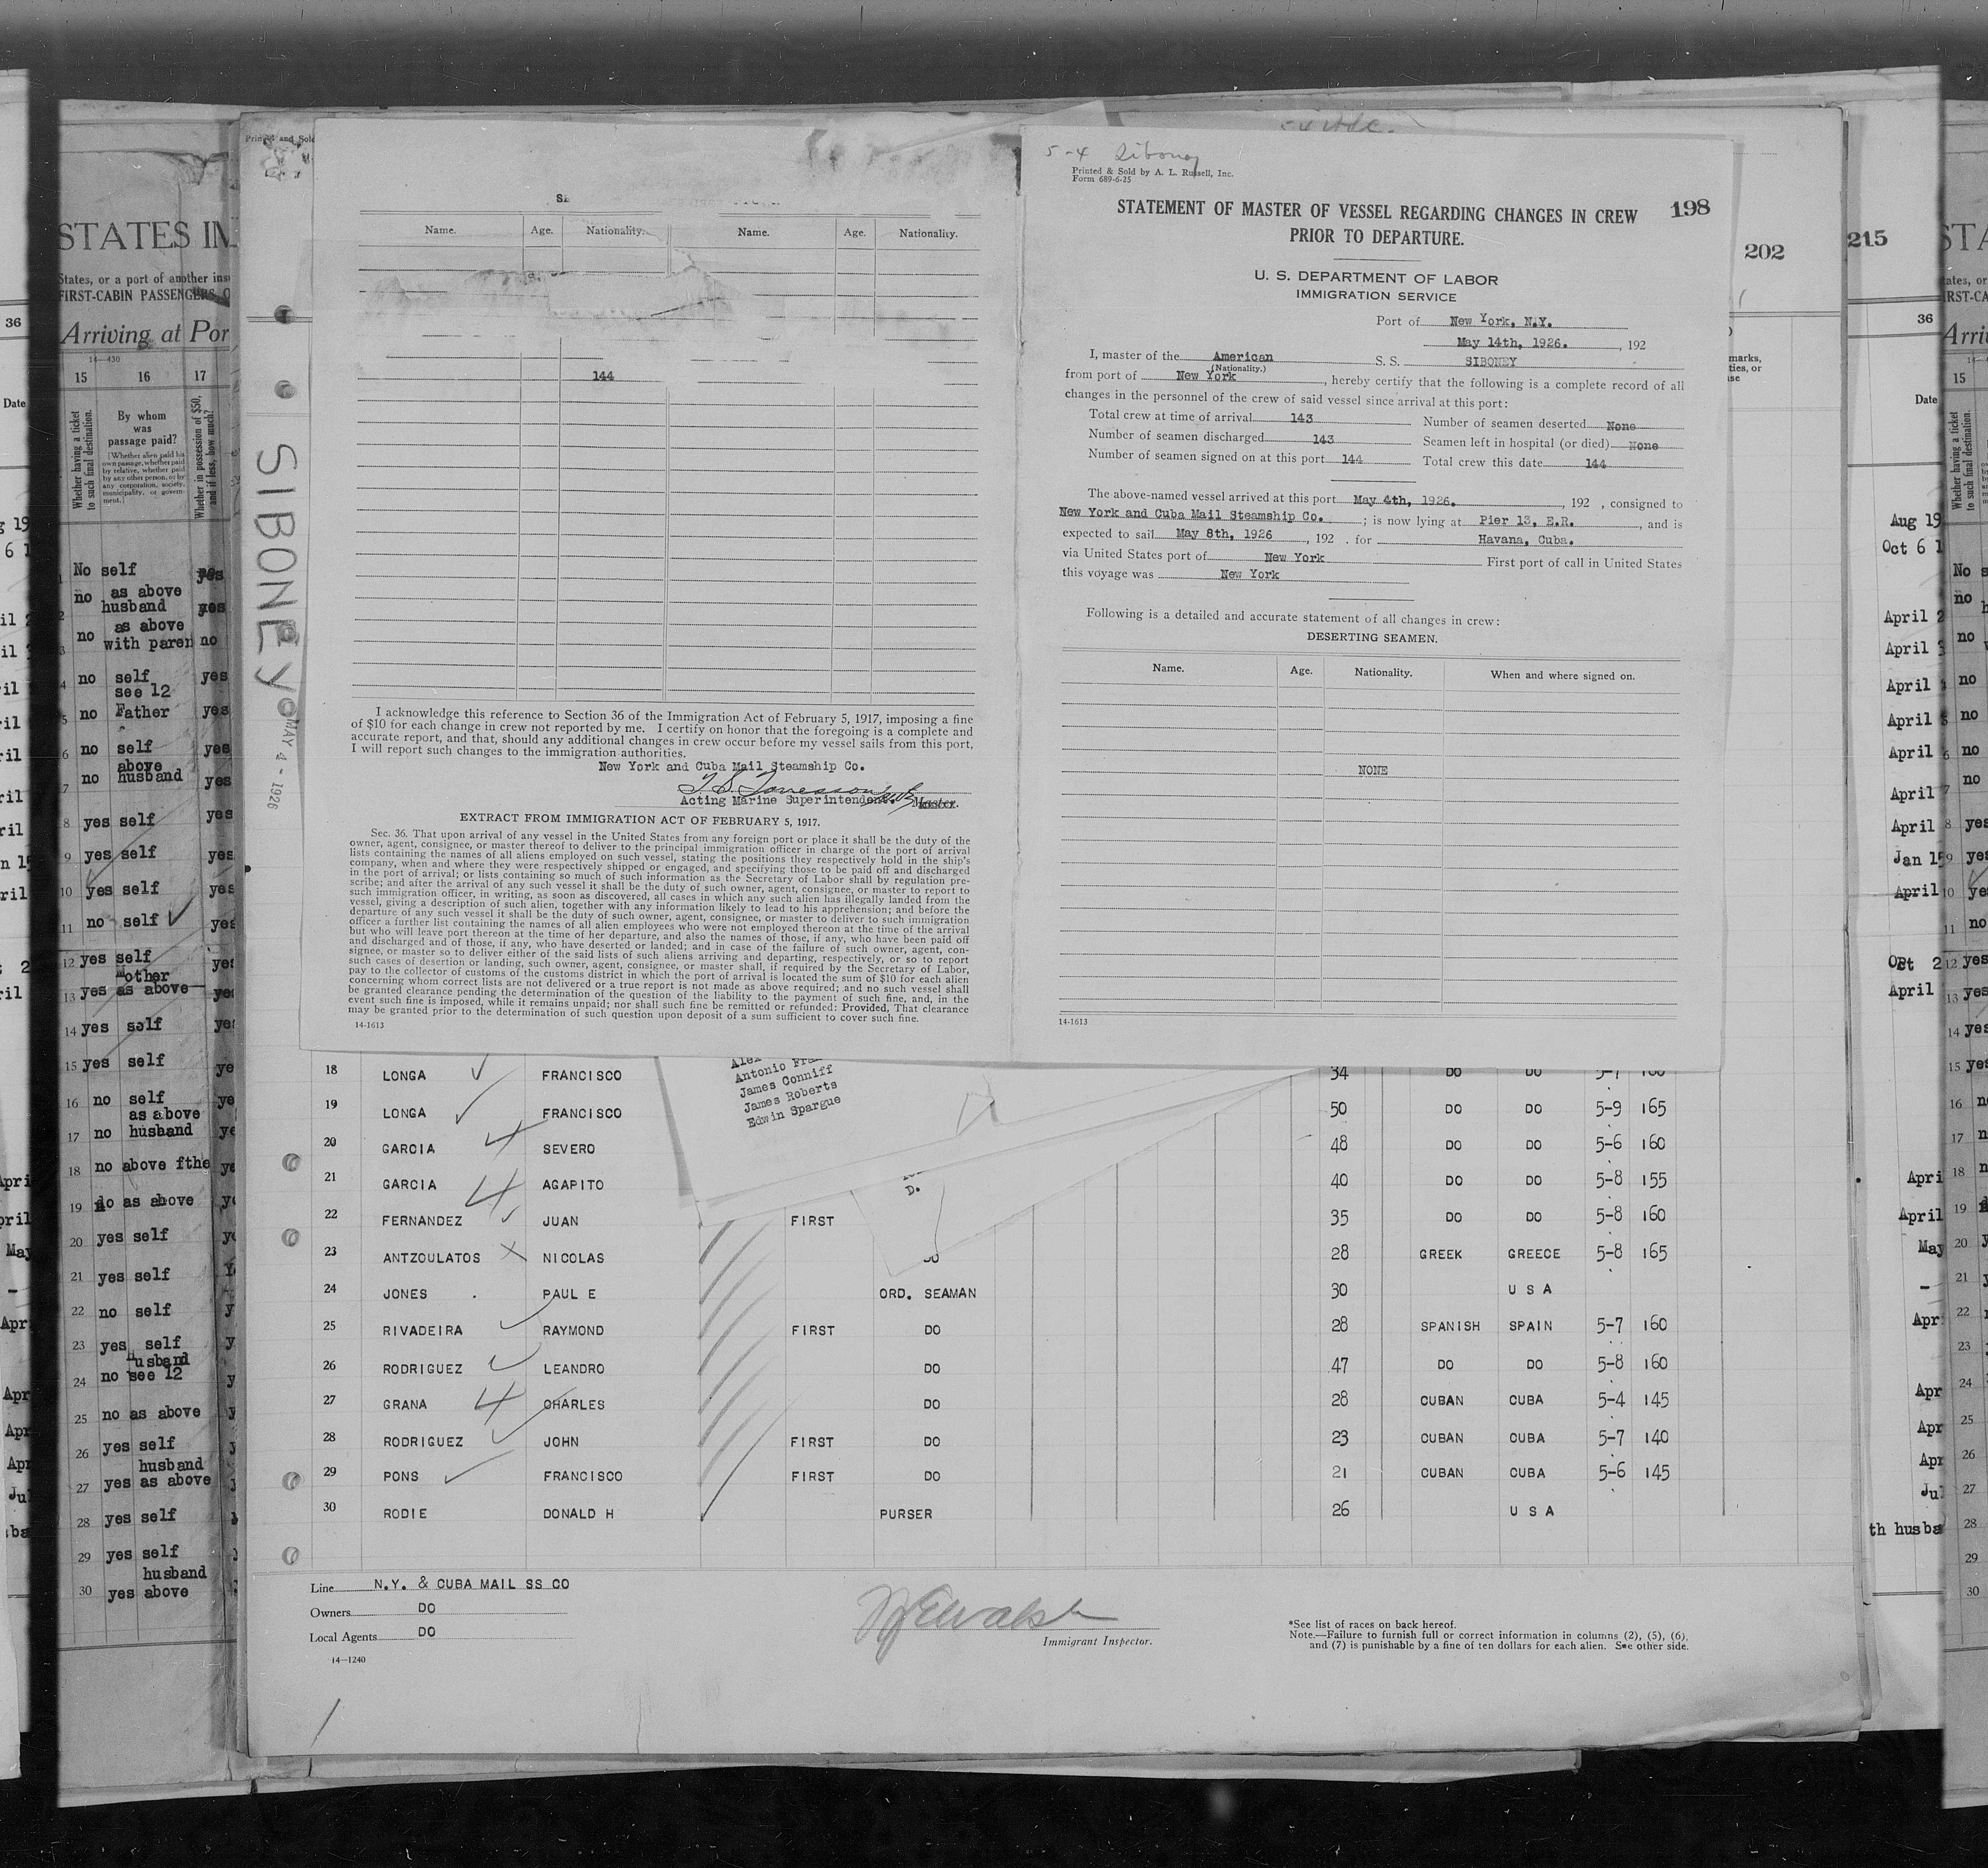 5-4 Siboney
Printed & Sold by A. L. Russell, Inc.
Form 689-6-25
198
STATEMENT OF MASTER OF VESSEL REGARDING CHANGES IN CREW
PRIOR TO DEPARTURE.
U. S. DEPARTMENT OF LABOR
IMMIGRATION SERVICE
Port of New York, N.Y.
May 14th, 1926. , 192
I, master of the American S. S. SIBONEY
(Nationality.)
from port of New York , hereby certify that the following is a complete record of all
changes in the personnel of the crew of said vessel since arrival at this port:
Total crew at time of arrival 143 Number of seamen deserted None
Number of seamen discharged 143 Seamen left in hospital (or died) None
Number of seamen signed on at this port 144 Total crew this date 144
The above-named vessel arrived at this port May 4th, 1926. , 192 , consigned to
New York and Cuba Mail Steamship Co. ; is now lying at Pier 13, E.R. , and is
expected to sail May 8th, 1926 , 192 . for Havana, Cuba.
via United States port of New York First port of call in United States
this voyage was New York
Following is a detailed and accurate statement of all changes in crew:
DESERTING SEAMEN.
Name. Age. Nationality. When and where signed on.
NONE
14-1613
Name. Age. Nationality. Name. Age. Nationality.
144
I acknowledge this reference to Section 36 of the Immigration Act of February 5, 1917, imposing a fine
of $10 for each change in crew not reported by me. I certify on honor that the foregoing is a complete and
accurate report, and that, should any additional changes in crew occur before my vessel sails from this port,
I will report such changes to the immigration authorities.
New York and Cuba Mail Steamship Co.
Acting Marine Superintendent. Master.
EXTRACT FROM IMMIGRATION ACT OF FEBRUARY 5, 1917.
Sec. 36. That upon arrival of any vessel in the United States from any foreign port or place it shall be the duty of the
owner, agent, consignee, or master thereof to deliver to the principal immigration officer in charge of the port of arrival
lists containing the names of all aliens employed on such vessel, stating the positions they respectively hold in the ship's
company, when and where they were respectively shipped or engaged, and specifying those to be paid off and discharged
in the port of arrival; or lists containing so much of such information as the Secretary of Labor shall by regulation pre-
scribe; and after the arrival of any such vessel it shall be the duty of such owner, agent, consignee, or master to report to
such immigration officer, in writing, as soon as discovered, all cases in which any such alien has illegally landed from the
vessel, giving a description of such alien, together with any information likely to lead to his apprehension; and before the
departure of any such vessel it shall be the duty of such owner, agent, consignee, or master to deliver to such immigration
officer a further list containing the names of all alien employees who were not employed thereon at the time of the arrival
but who will leave port thereon at the time of her departure, and also the names of those, if any, who have been paid off
and discharged and of those, if any, who have deserted or landed; and in case of the failure of such owner, agent, con-
signee, or master so to deliver either of the said lists of such aliens arriving and departing, respectively, or so to report
such cases of desertion or landing, such owner, agent, consignee, or master shall, if required by the Secretary of Labor,
pay to the collector of customs of the customs district in which the port of arrival is located the sum of $10 for each alien
concerning whom correct lists are not delivered or a true report is not made as above required; and no such vessel shall
be granted clearance pending the determination of the question of the liability to the payment of such fine, and, in the
event such fine is imposed, while it remains unpaid; nor shall such fine be remitted or refunded: Provided, That clearance
may be granted prior to the determination of such question upon deposit of a sum sufficient to cover such fine.
14-1613
SIBONEY
MAY 4 - 1926
202
215
Antonio
James Conniff
James Roberts
Edwin Spargue
18 LONGA FRANCISCO 34 DO DO
19 LONGA FRANCISCO 50 DO DO 5-9 165
20 GARCIA SEVERO 48 DO DO 5-6 160
21 GARCIA AGAPITO 40 DO DO 5-8 155
22 FERNANDEZ JUAN FIRST 35 DO DO 5-8 160
23 ANTZOULATOS NICOLAS DO 28 GREEK GREECE 5-8 165
24 JONES PAUL E ORD. SEAMAN 30 U S A
25 RIVADEIRA RAYMOND FIRST DO 28 SPANISH SPAIN 5-7 160
26 RODRIGUEZ LEANDRO DO 47 DO DO 5-8 160
27 GRANA CHARLES DO 28 CUBAN CUBA 5-4 145
28 RODRIGUEZ JOHN FIRST DO 23 CUBAN CUBA 5-7 140
29 PONS FRANCISCO FIRST DO 21 CUBAN CUBA 5-6 145
30 RODIE DONALD H PURSER 26 U S A
Line N.Y. & CUBA MAIL SS CO
Owners DO
Local Agents DO
14-1240
Immigrant Inspector.
*See list of races on back hereof.
Note.—Failure to furnish full or correct information in columns (2), (5), (6),
and (7) is punishable by a fine of ten dollars for each alien. See other side.
STATES IM
States, or a port of another ins
FIRST-CABIN PASSENGERS
Arriving at Por
14-430
15 16 17
Whether having a ticket to such final destination.
By whom
was
passage paid?
[Whether alien paid his
own passage, whether paid
by relative, whether paid
by any other person, or by
any corporation, society,
municipality, or govern-
ment.]
Whether in possession of $50, and if less, how much?
No self
no as above husband
no as above with paren no
4 no self see 12 yes
5 no Father yes
6 no self yes
7 no above husband yes
8 yes self yes
9 yes self yes
10 yes self yes
11 no self yes
12 yes self
13 yes Mother as above
14 yes self
15 yes self
16 no self
17 no as above husband
18 no above fthe
19 as above
20 yes self
21 yes self
22 no self
23 yes self
24 no Husband see 12
25 no as above
26 yes self
27 yes husband as above
28 yes self
29 yes self
30 yes husband above
36
Date
Aug 19
Oct 6 1
April
April
April
April
April
April
April
Jan 15
April
April
April
May